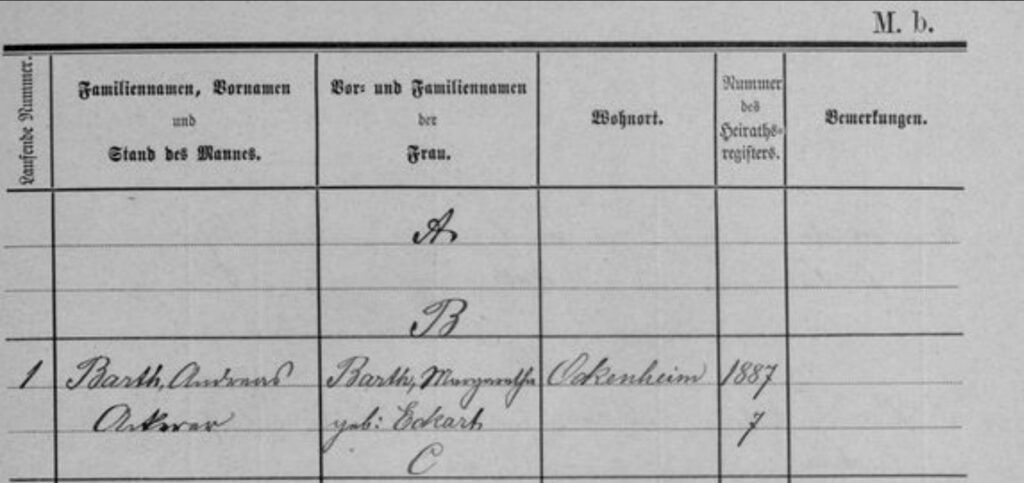 M. b.
Laufende Nummer.
Familiennamen, Vornamen
und
Stand des Mannes.
Vor- und Familiennamen
der
Frau.
Wohnort.
Nummer
des
Heiraths-
registers.
Bemerkungen.
A
B
1 Barth, Andreas Barth, Margaretha Ockenheim 1887
Ackerer geb: Eckart 7
C